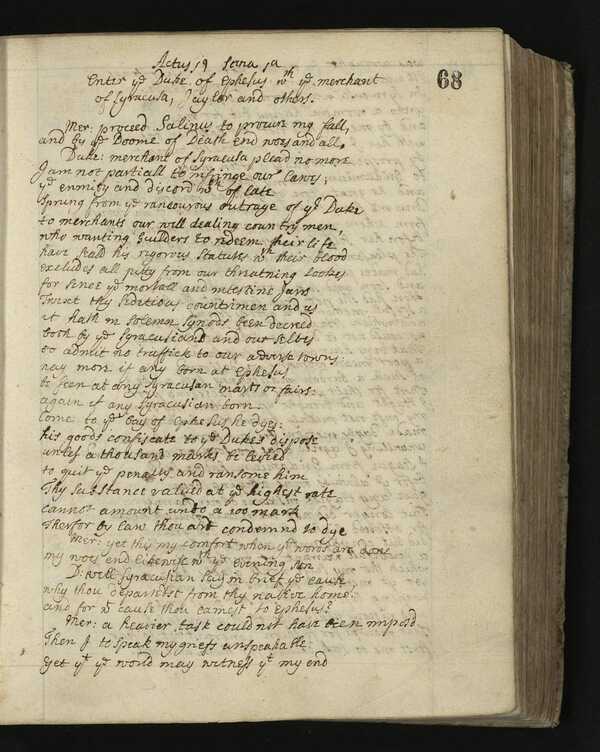 Actus 19 scena 1a
Enter ye Duke of Ephesus wth ye merchant
of Syracusa, Jaylor and others.
68
Mer: proceed Salinus to procure my fall,
and by ye Doome of Death End woes and all.
Duke: merchant of Syracusa plead no more
I am not partiall to infringe our lawes;
ye enmity and discord wch of late
Sprung from ye rancourous outrage of yr Duke
to merchants our well dealing countrymen,
who wanting Guilders to redeem their life
have seald his rigorous Statutes wth their blood
excludes all pitty from our threatning lookes
for since ye mortall and intestine Jars
Twixt thy Seditious countrimen and us
it hath in Solemn Synods been decreed
both by ye Syracusians and our selves
to admit no traffick to our adverse towns:
nay more if any born at Ephesus
be seen at any Syracusan marts or fairs:
again if any Syracusian born
Come to ye bay of Ephesus he dyes:
his goods confiscate to ye Dukes dispose
unles a thousand marks be levied
to quit ye penalty and ransome him
Thy Substance valued at ye highest rate
cannot amount unto a 100 mark
Therfor by law thou art condemnd to dye
Mer: yet this my comfort when yr words are done
my woes end likewise wth ye evening sun
D: well Syracusian say in brief ye cause
why thou departest from thy native home:
and for wt cause thou camest to Ephesus?
Mer: a heavier task could not have been imposd
Then I to speak my griefs unspeakable
yet yt ye world may witness yt my end